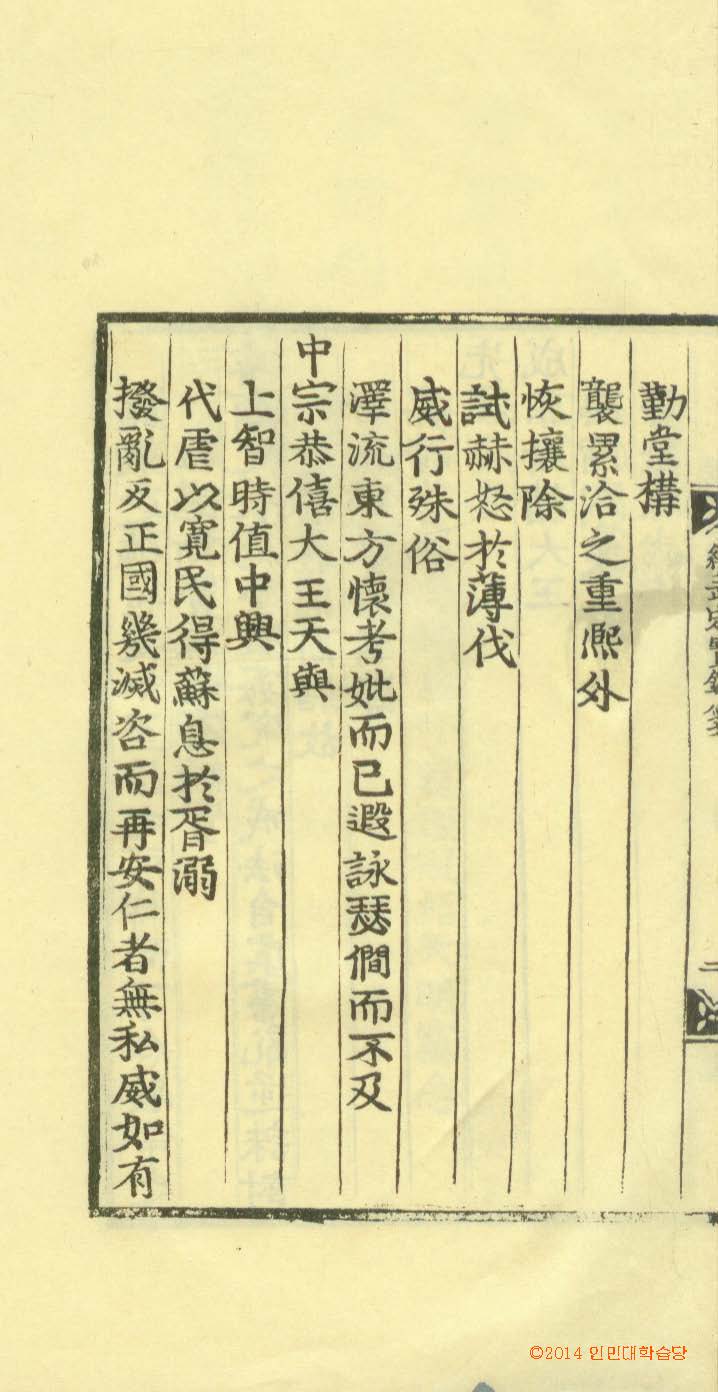 勤堂構
襲累洽之重熈外
恢攘除
試赫怒於薄伐
威行殊俗
澤流東方懷考妣而已遐詠瑟僩而不及
中宗恭僖大王天與
上智時值中興
代虐以寬民得蘇息於胥溺
撥亂反正國幾滅咨而再安仁者無私威如有
二
©2014 인민대학습당